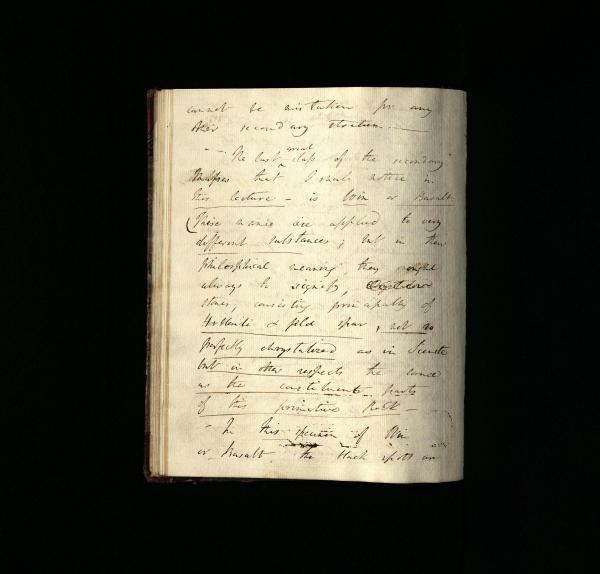 cannot be mistaken for any
other secondary stratum. —
— The last great class of the secondary
that I shall notice in
this lecture – is Win or Basalt.
(These names are applied to very
different substances; but in their
philosophical meaning they ought
always to signify,
stones, consisting principally of
& feld spar, not so
perfectly chrystalized as in Sienite
but in other respects the same
as the constituent parts
of this primitive Rock –
– In this specimen of Win
or Basalt the black spots are